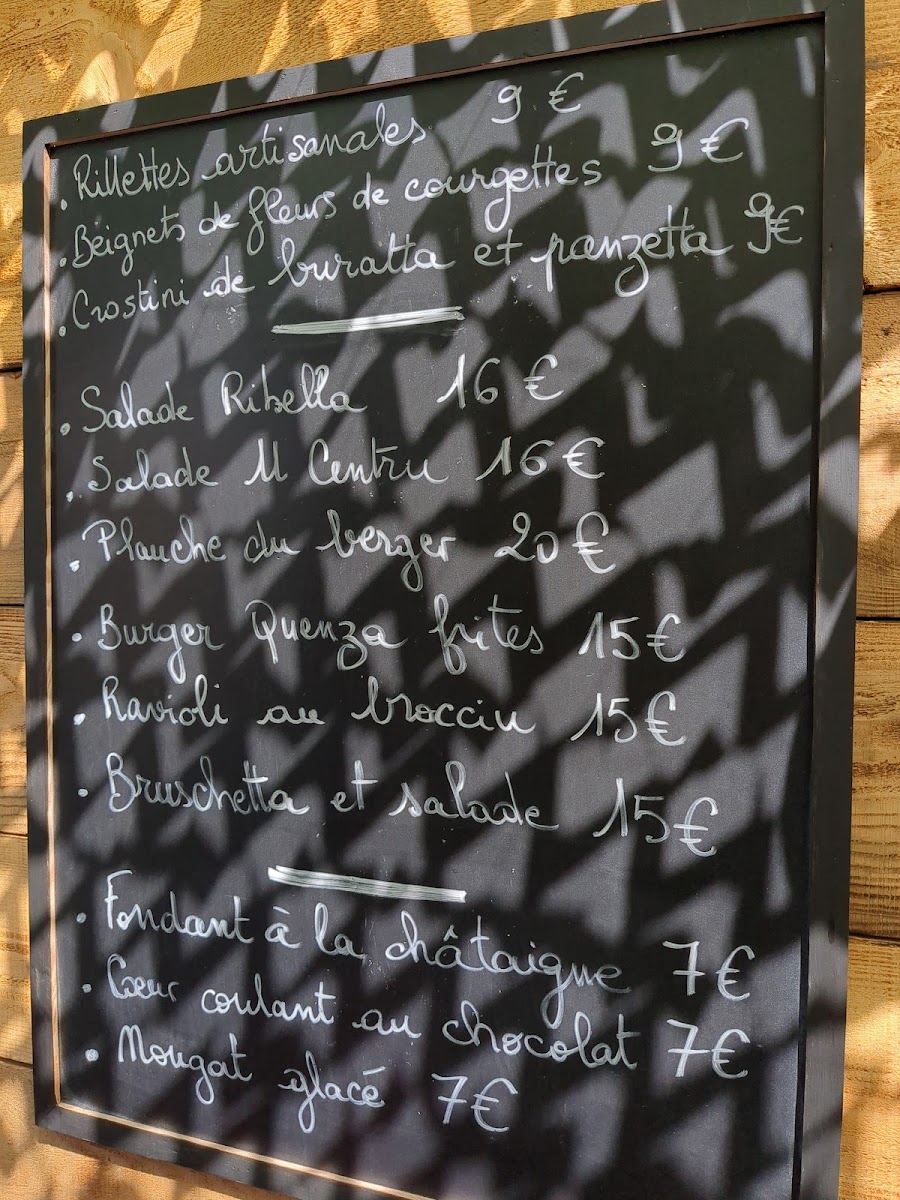 . Rillettes artisanales 9 €
. Beignets de fleurs de courgettes 9 €
. Crostini de buratta et panzetta 9€
. Salade Ribella 16 €
. Salade U Centru 16 €
. Planche du berger 20 €
. Burger Quenza frites 15€
. Ravioli au brocciu 15€
. Bruschetta et salade 15€
. Fondant à la châtaigne 7€
. Cœur coulant au chocolat 7€
. Nougat glacé 7€